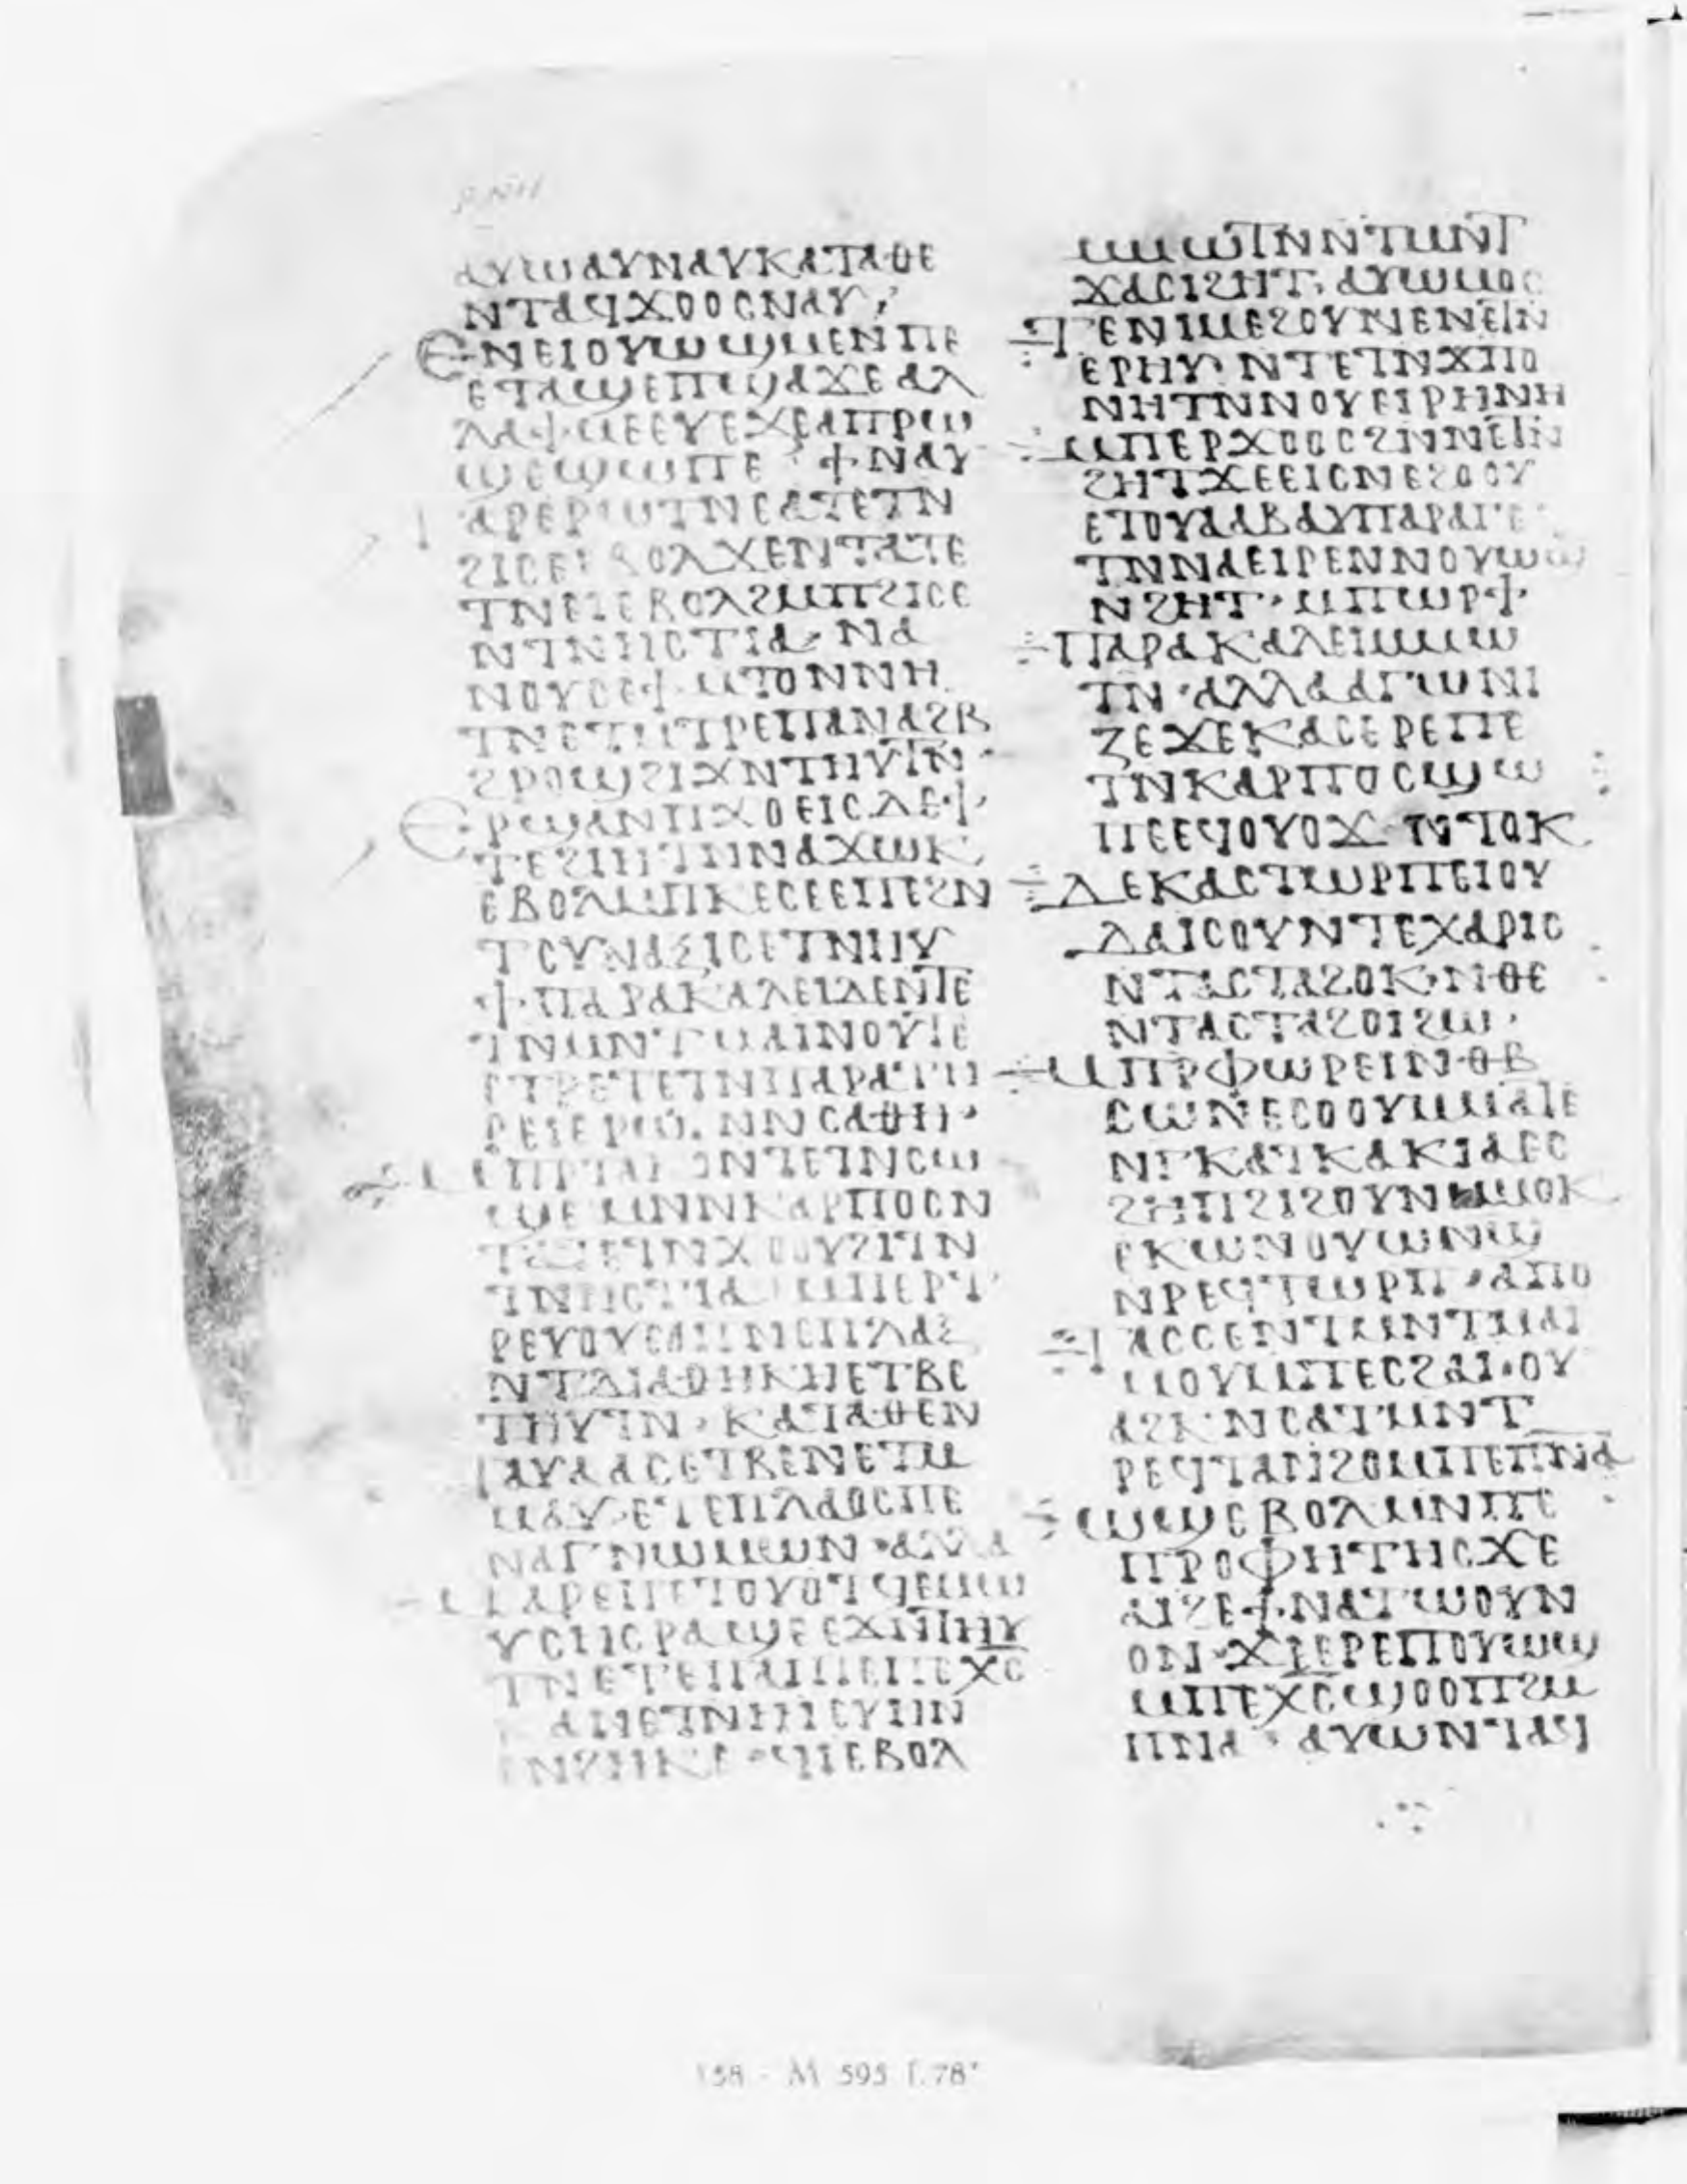 ⲣⲛⲏ
ⲁⲩⲱⲁⲩⲛⲁⲩⲕⲁⲧⲁⲑⲉ
ⲛⲧⲁϥϫⲟⲟⲥⲛⲁⲩ
ⲉⲛⲉⲓⲟⲩⲱϣⲙⲉⲛⲡⲉ
ⲉⲧⲁϣⲉⲡϣⲁϫⲉⲁⲗ
ⲗⲁϯⲙⲉⲉⲩⲉϫⲉⲁⲡⲣⲱ
ϣⲉϣⲱⲡⲉ ϯⲛⲁⲩ
ⲅⲁⲣⲉⲣⲱⲧⲛⲉⲁⲧⲉⲧⲛ
ϩⲓⲥⲉⲉⲃⲟⲗϫⲉⲛⲧⲁⲧⲉ
ⲧⲛⲉⲓⲉⲃⲟⲗϩⲙⲡϩⲓⲥⲉ
ⲛⲧⲛⲏⲥⲧⲓⲁ ⲛⲁ
ⲛⲟⲩⲥⲉϯⲙⲧⲟⲛⲛⲏ
ⲧⲛⲉⲧⲙⲧⲣⲉⲡⲁⲛⲁϩⲃ
ϩⲣⲟϣϩⲓϫⲛⲧⲏⲩⲧⲛ
ⲉⲣϣⲁⲛⲡϫⲟⲉⲓⲥⲇⲉϯ
ⲧⲉϩⲓⲏⲧⲛⲛⲁϫⲱⲕ
ⲉⲃⲟⲗⲙⲡⲕⲉⲥⲉⲉⲡⲉϩⲛ
ⲧⲥⲩⲛⲁⲝⲓⲥⲉⲧⲛⲏⲩ
ϯⲡⲁⲣⲁⲕⲁⲗⲉⲓⲇⲉⲛⲧⲉ
ⲧⲛⲙⲛⲧⲙⲁⲓⲛⲟⲩⲧⲉ
ⲉⲧⲣⲉⲧⲉⲧⲛⲡⲁⲣⲁⲧⲏ
ⲣⲉⲓⲉⲣⲱ ⲛⲛⲥⲁⲑⲏ
ⲙⲡⲣⲧⲁⲕⲟⲛⲧⲉⲧⲛⲥⲱ
ϣⲉⲙⲛⲛⲕⲁⲣⲡⲟⲥⲛ
ⲧⲁⲧⲉⲧⲛϫⲟⲟⲩϩⲓⲧⲛ
ⲧⲛⲏⲥⲧⲓⲁ ⲙⲡⲉⲣⲧ
ⲣⲉⲩⲟⲩⲉⲙⲡⲛⲉⲡⲗⲁⲝ
ⲛⲧⲇⲓⲁⲑⲏⲕⲏⲉⲧⲃⲉ
ⲧⲏⲩⲧⲛ ⲕⲁⲧⲁⲑⲉⲛ
ⲧⲁⲩⲁⲁⲥⲉⲧⲃⲉⲛⲉⲧⲙ
ⲙⲁⲩ ⲉⲧⲉⲡⲗⲁⲟⲥⲡⲉ
ⲛⲁⲅⲛⲱⲙⲱⲛ ⲁⲗⲗⲁ
ⲙⲁⲣⲉⲡⲉⲧⲟⲩⲟⲧϥⲉⲙⲱ
ⲩⲥⲏⲥⲣⲁϣⲉⲉϫⲛⲧⲏⲩ
ⲧⲛⲉⲧⲉⲡⲁⲓⲡⲉⲡⲉⲭⲥ
ⲉⲛϩⲏⲕⲉ ϥⲓⲉⲃⲟⲗ
ⲙⲙⲱⲧⲛⲛⲧⲙⲛⲧ
ϫⲁⲥⲓϩⲏⲧ ⲁⲩⲱⲙⲟⲥ
ⲧⲉⲛⲓⲙⲉϩⲟⲩⲛⲉⲛⲉⲧⲛ
ⲉⲣⲏⲩ ⲛⲧⲉⲧⲛϫⲡⲟ
ⲛⲏⲧⲛⲛⲟⲩⲉⲓⲣⲏⲛⲏ
ⲙⲡⲉⲣϫⲟⲟⲥϩⲛⲛⲉⲧⲛ
ϩⲏⲧϫⲉⲉⲓⲥⲛⲉϩⲟⲟⲩ
ⲉⲧⲟⲩⲁⲁⲃⲁⲩⲡⲁⲣⲁⲅⲉ
ⲧⲛⲛⲁⲉⲓⲣⲉⲛⲛⲟⲩⲱϣ
ⲛϩⲏⲧ ⲙⲡⲱⲣϯ
ⲡⲁⲣⲁⲕⲁⲗⲉⲓⲙⲙⲱ
ⲧⲛ ⲁⲗⲗⲁⲁⲅⲱⲛⲓ
ⲍⲉϫⲉⲕⲁⲥⲉⲣⲉⲡⲉ
ⲧⲛⲕⲁⲣⲡⲟⲥϣⲱ
ⲡⲉⲉϥⲟⲩⲟϫ ⲛⲧⲟⲕ
ⲇⲉⲕⲁⲥⲧⲱⲣⲡⲉⲓⲟⲩ
ⲇⲁⲓⲥⲟⲩⲛⲧⲉⲭⲁⲣⲓⲥ
ⲛⲧⲁⲥⲧⲁϩⲟⲕ ⲛⲑⲉ
ⲛⲧⲁⲥⲧⲁϩⲟⲓϩⲱ
ⲙⲡⲣⲫⲱⲣⲉⲓⲛⲑⲃ
ⲥⲱⲛⲉⲥⲟⲟⲩⲙⲙⲁⲧⲉ
ⲛⲅⲕⲁⲧⲕⲁⲕⲓⲁⲉⲥ
ϩⲏⲡϩⲓϩⲟⲩⲛⲙⲙⲟⲕ
ⲉⲕⲱⲛⲟⲩⲱⲛϣ
ⲛⲣⲉϥⲧⲱⲣⲡ ⲁⲡⲟ
ⲧⲁⲥⲥⲉⲛⲧⲙⲛⲧⲙⲁⲓ
ⲙⲟⲩⲙⲡⲉⲥϩⲁⲓ ⲟⲩ
ⲁϩⲕ ⲛⲥⲁⲧⲙⲛⲧ
ⲣⲉϥⲧⲁⲛϩⲟⲙⲡⲉⲡⲛⲁ
ⲱϣⲉⲃⲟⲗⲙⲛⲡⲉ
ⲡⲣⲟⲫⲏⲧⲏⲥϫⲉ
ⲁⲓϩⲉϯⲛⲁⲧⲱⲟⲩⲛ
ⲟⲛ ϫⲉⲉⲣⲉⲡⲟⲩⲱϣ
ⲙⲡⲉⲭⲥϣⲟⲟⲡϩⲙ
ⲡⲛⲁ ⲁⲩⲱⲛⲧⲁϥ
158 - M 595 f.78ᵛ